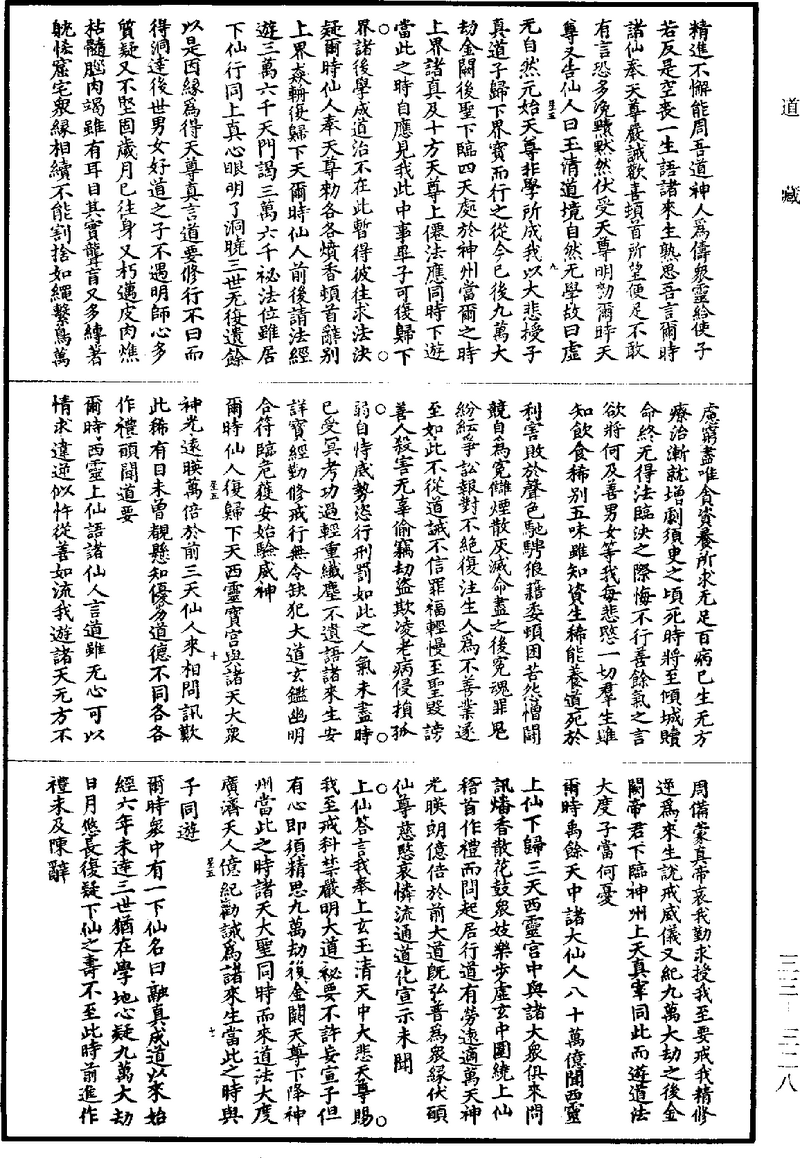 道藏
精進不懈能周吾道神人為儔衆靈給使子
若反是空丧一生語諸來生熟思吾言爾時
諸仙奉天尊嚴誡歡喜頓首所望便足不敢
有言恐多浼黷默然伏受天尊明勑爾時天
尊又告仙人曰玉清道境自然无學故曰虛
无自然元始天尊非學所成我以大悲授子
真道子歸下界寶而行之從今已後九萬大
劫金闕後聖下臨四天處於神州當爾之時
上界諸真及十方天尊上僊法應同時下遊
當此之時自應見我此中事畢子可復歸下
界諸後學成道治不在此暫得彼往求法決
疑爾時仙人奉天尊勑各各燔香頓首辭別
上界焱軿復歸下天爾時仙人前後請法經
遊三萬六千天門謁三萬六千祕法位雖居
下仙行同上真心眼明了洞曉三世无復遺餘
以是因緣為得天尊真言道要修行不日而
得洞達後世男女好道之子不遇明師心多
質疑又不堅固歲月已往身又朽邁皮肉燋
枯髓腦内竭雖有耳目其實聾盲又多縛著
躭恡窟宅衆緣相續不能割捨如繩繫鳥萬
慮窮盡唯貪資養所求无足百病已生无方
療治漸就增劇須臾之頃死時將至傾城贖
命終无得法臨決之際悔不行善餘氣之言
欲將何及善男女等我每悲愍一切羣生雖
知飲食稀別五味雖知資生稀能養道死於
利害敗於聲色馳騁狼藉委頓困苦怨憎鬭
競自為寃讎煙散灰滅命盡之後寃魂罪鬼
紛紜爭訟報對不絕復注生人為不善業遂
至如此不從道誡不信罪福輕慢至聖毀謗
善人殺害无辜偷竊劫盜欺凌老病侵損孤
弱自恃威勢恣行刑罰如此之人氣未盡時
已受冥考功過輕重纖塵不遺語諸來生安
詳寶經勤修戒行無令缺犯大道玄鑑幽明
合符臨危獲安始驗威神
爾時仙人復歸下天西靈寶宫與諸天大衆
神光遠映萬倍於前三天仙人來相問訊歎
此稀有目未曾覩懸知優劣道德不同各各
作禮願聞道要
爾時西靈上仙語諸仙人言道雖无心可以
情求違逆似忤從善如流我遊諸天无方不
周備蒙真帝哀我勤求授我至要戒我精修
逆為來生說戒威儀又紀九萬大劫之後金
闕帝君下臨神州上天真宰同此而遊道法
大度子當何憂
爾時禹餘天中諸大仙人八十萬億聞西靈
上仙下歸三天西靈宫中與諸大衆俱來問
訊燔香散花鼓衆妓樂步虛玄中圍繞上仙
稽首作禮而問起居行道有勞遠適萬天神
光映朗億倍於前大道旣弘普為衆緣伏願
仙尊慈愍哀憐流通道化宣示未聞
上仙答言我奉上玄玉清天中大悲天尊賜
我至戒科禁嚴明大道祕要不許妄宣子但
有心即須精思九萬劫後金闕天尊下降神
州當此之時諸天大聖同時而來道法大度
廣濟天人億紀勸誡為諸來生當此之時與
子同遊
爾時衆中有一下仙名曰融真成道以來始
經六年未達三世猶在學地心疑九萬大劫
日月悠長復疑下仙之壽不至此時前進作
禮未及陳辭
三三—三二八